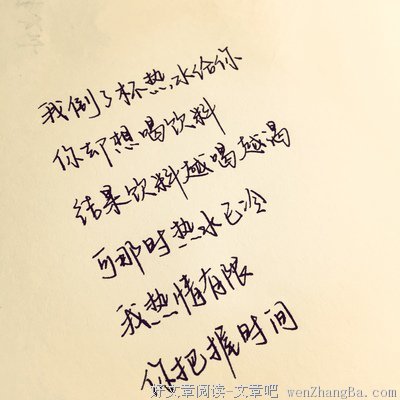 我倒了杯热水给你
你却想喝饮料
结果饮料越喝越渴
可那时热水已冷
我热情有限
你把握时间
好文章阅读-文章吧 wenZhangBa.com